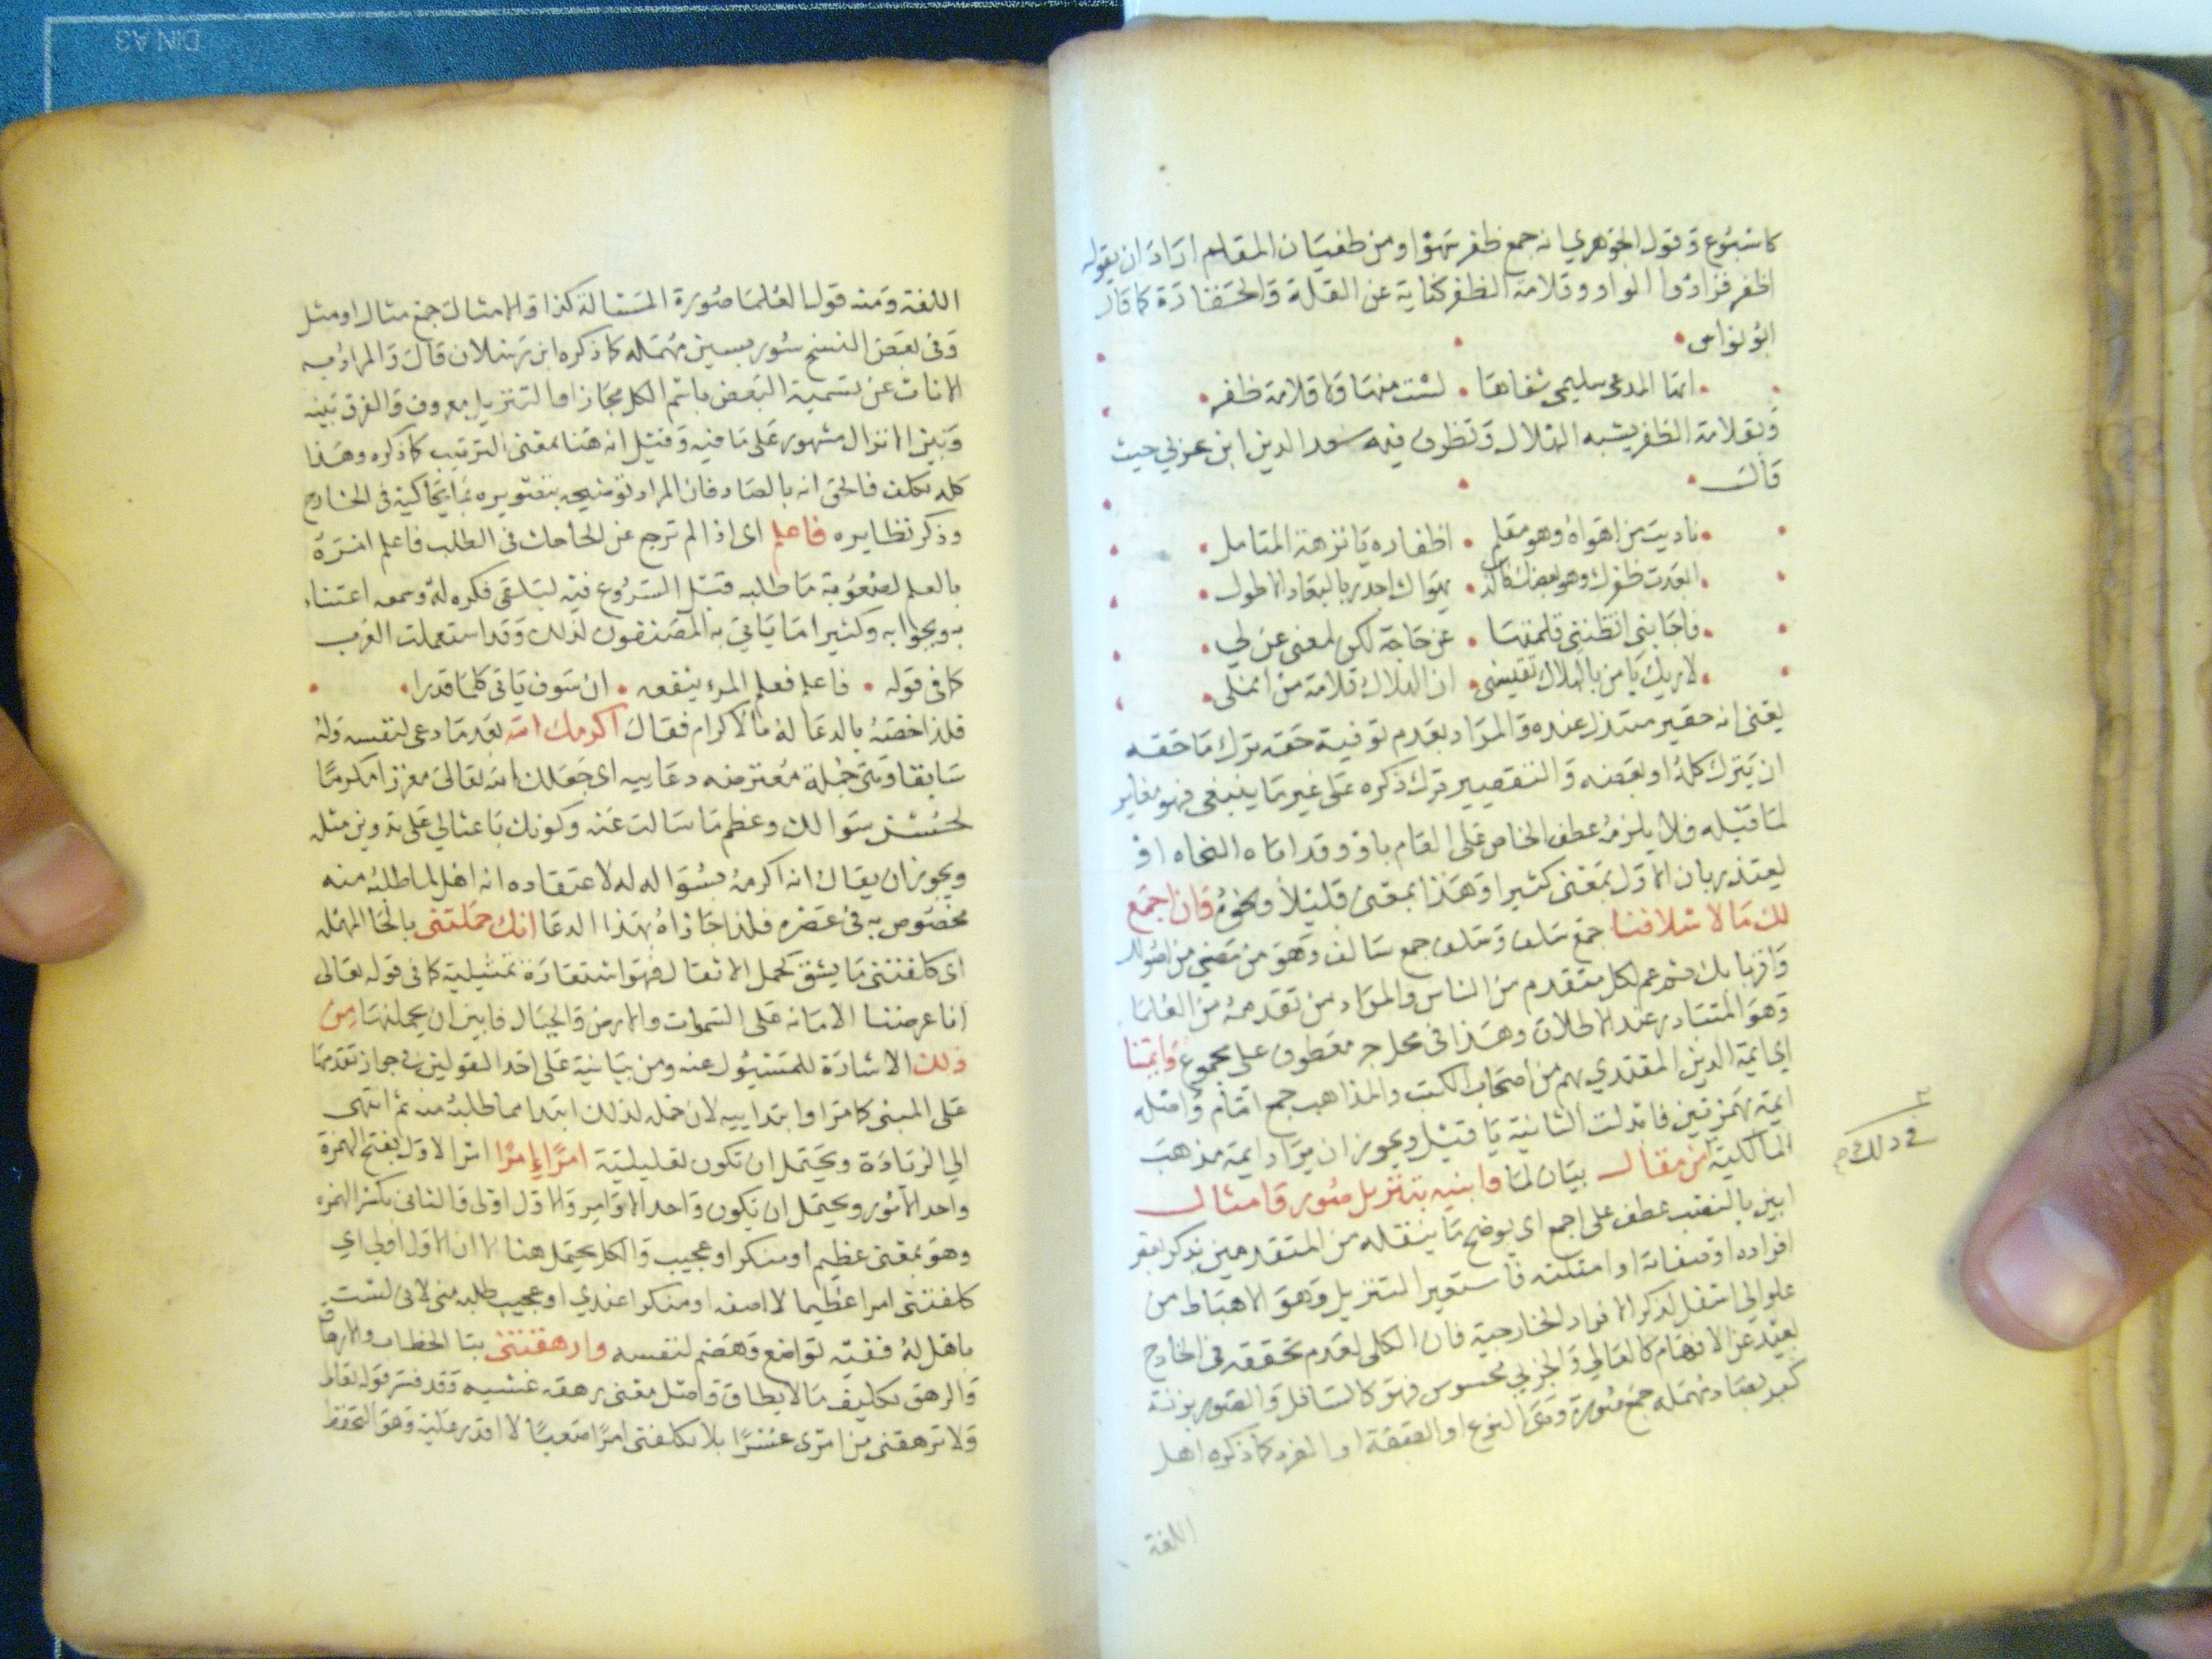 كاسبوع وقول الجوهري انه جمع ظفر سهو او من طغيان القلم اراد ان يقوله
اظفر فزادوا الواو وقلامة الظفر كناية عن القلة والحقارة كما قال
ابو نواس
انما المدعى سليمى شفاها لست منها ولا قلامة ظفر
وبقلامة الظفر يشبه الهلال وتظرف فيه سعد الدين ابن عربي حيث
قال
ناديت من اهواه وهو مقلم اظفاره يا نزهة المتامل
ابعدت ظفرك وهو بعضك فالذ يهواك اجدر بالبعاد الاطول
فاجابني اتظنني قلمتها عن حاجة لكن لمعنى عن لي
لاريك يا من بالهلال تقيسني ان الهلال قلامة من انملي
يعني انه حقير مبتذل عنده والمراد بعدم توفية حقه ترك ما حقه
ان يترك كله او بعضه والتقصير ترك ذكره على غير ما ينبغي فهو مغاير
لما قبله فلا يلزم عطف الخاص على العام باو وقد اباه النحاه او
يعتذر بان الاول بمعنى كثيرا وهذا بمعنى قليلا ونحوه فان اجمع
لك ما لاسلافنا جمع سلف وسلف جمع سالف وهو من مضى من اصولك
واقربايك ثم عم لكل متقدم من الناس والمراد من تقدمه من العلما
وهو المتبادر عند الاطلاق وهذا في محل جر معطوف على مجموع وايمتنا
اي ايمة الدين المقتدي بهم من اصحاب الكتب والمذاهب جمع امام واصله
ايمة بهمزتين فابدلت الثانية يا قيل ويجوز ان يراد ايمة مذهب
المالكية من مقال بيان لما وابنيه بتنزيل صور وامثال
في ذلك صح
ابين بالنصب عطف على اجمع اي يوضح ما ينقله من المتقدمين بذكر بعض
افراده او صفاته او امثلته فاستعير التنزيل وهو الاهباط من
علو الى اسفل لذكر الافراد الخارجية فان الكلي لعدم تحققه في الخارج
بعيد عن الافهام كالعالي والجزيي محسوس فهو كالسافل والصور بزنة
كعبر بصاد مهملة جمع صورة وهى النوع او الصفة او الفرد كما ذكره اهل
اللغة
اللغة ومنه قول العلما صورة المسئالة كذا والامثال جمع مثال او مثل
وفى بعض النسخ سور بسين مهمله كما ذكره ابن رسلان قال والمراد به
الايات عن تسمية البعض باسم الكل مجازا والتنزيل معروف والفرق بينه
وبين الانزال مشهور على ما فيه وقيل انه هنا بمعنى الترتيب كما ذكره وهذا
كله تكلف فالحق انه بالصاد فان المراد توضيحه بتصويره بما يحاكيه في الخارج
وذكر نظايره فاعلم اى اذا لم ترجع عن الحاحك فى الطلب فاعلم امره
بالعلم لصعوبة ما طلبه قبل الشروع فيه ليتلقى فكره له وسمعه اعتناء
به وبجوابه وكثيرا ما ياتى به المصنفون لذلك وقد استعملت العرب
كما فى قوله فاعلم فعلم المرء ينفعه ان سوف ياتى كلما قدرا
فلذا خصه بالدعا له بالاكرام فقال اكرمك الله بعد ما دعى لنفسه وله
سابقا وهى جملة معترضه دعاييه اى جعلك الله تعالى معززا مكرما
لحسن سوالك وعظم ما سالت عنه وكونك باعثا لي على تدوين مثله
ويجوز ان يقال انه اكرمه بسواله له لاعتقاده انه اهل لما طلبه منه
مخصوص به فى عصره فلذا جازاه بهذا الدعا انك حملتنى بالحا المهمله
اى كلفتنى ما يشق كحمل الاثقال فهو استعارة تمثيلية كما فى قوله تعالى
انا عرضنا الامانه على السموات والارض والجبال فابين ان يحملنها من
ذلك الاشارة للمسئول عنه ومن بيانية على احد القولين في جواز تقدمها
على المبنى كما مر او ابتداييه لان حمله لذلك ابتدا مما طلبه منه ثم انتهى
الى الزيادة ويحتمل ان تكون تعليلية امرا إمرا امرا الاول بفتح الهمزة
واحد الامور ويحتمل ان تكون واحد الاوامر والاول اولى والثانى بكسر الهمزه
وهو بمعنى عظيم او منكر او عجيب والكل يحتمل هنا الا ان الاول اولى اي
كلفتنى امرا عظيما لا اصفه او منكرا عندي او عجيب طلبه منى لانى لست
باهل له ففيه تواضع وهضم لنفسه وارهقتنى بتا الخطاب والارهاق
والرهق تكليف ما لا يطاق واصل معنى رهقه غشيه وقد فسر قوله تعالى
ولا ترهقنى من امرى عسرا بلا تكلفنى امرا صعبا لا اقدر عليه وهو التحفظ